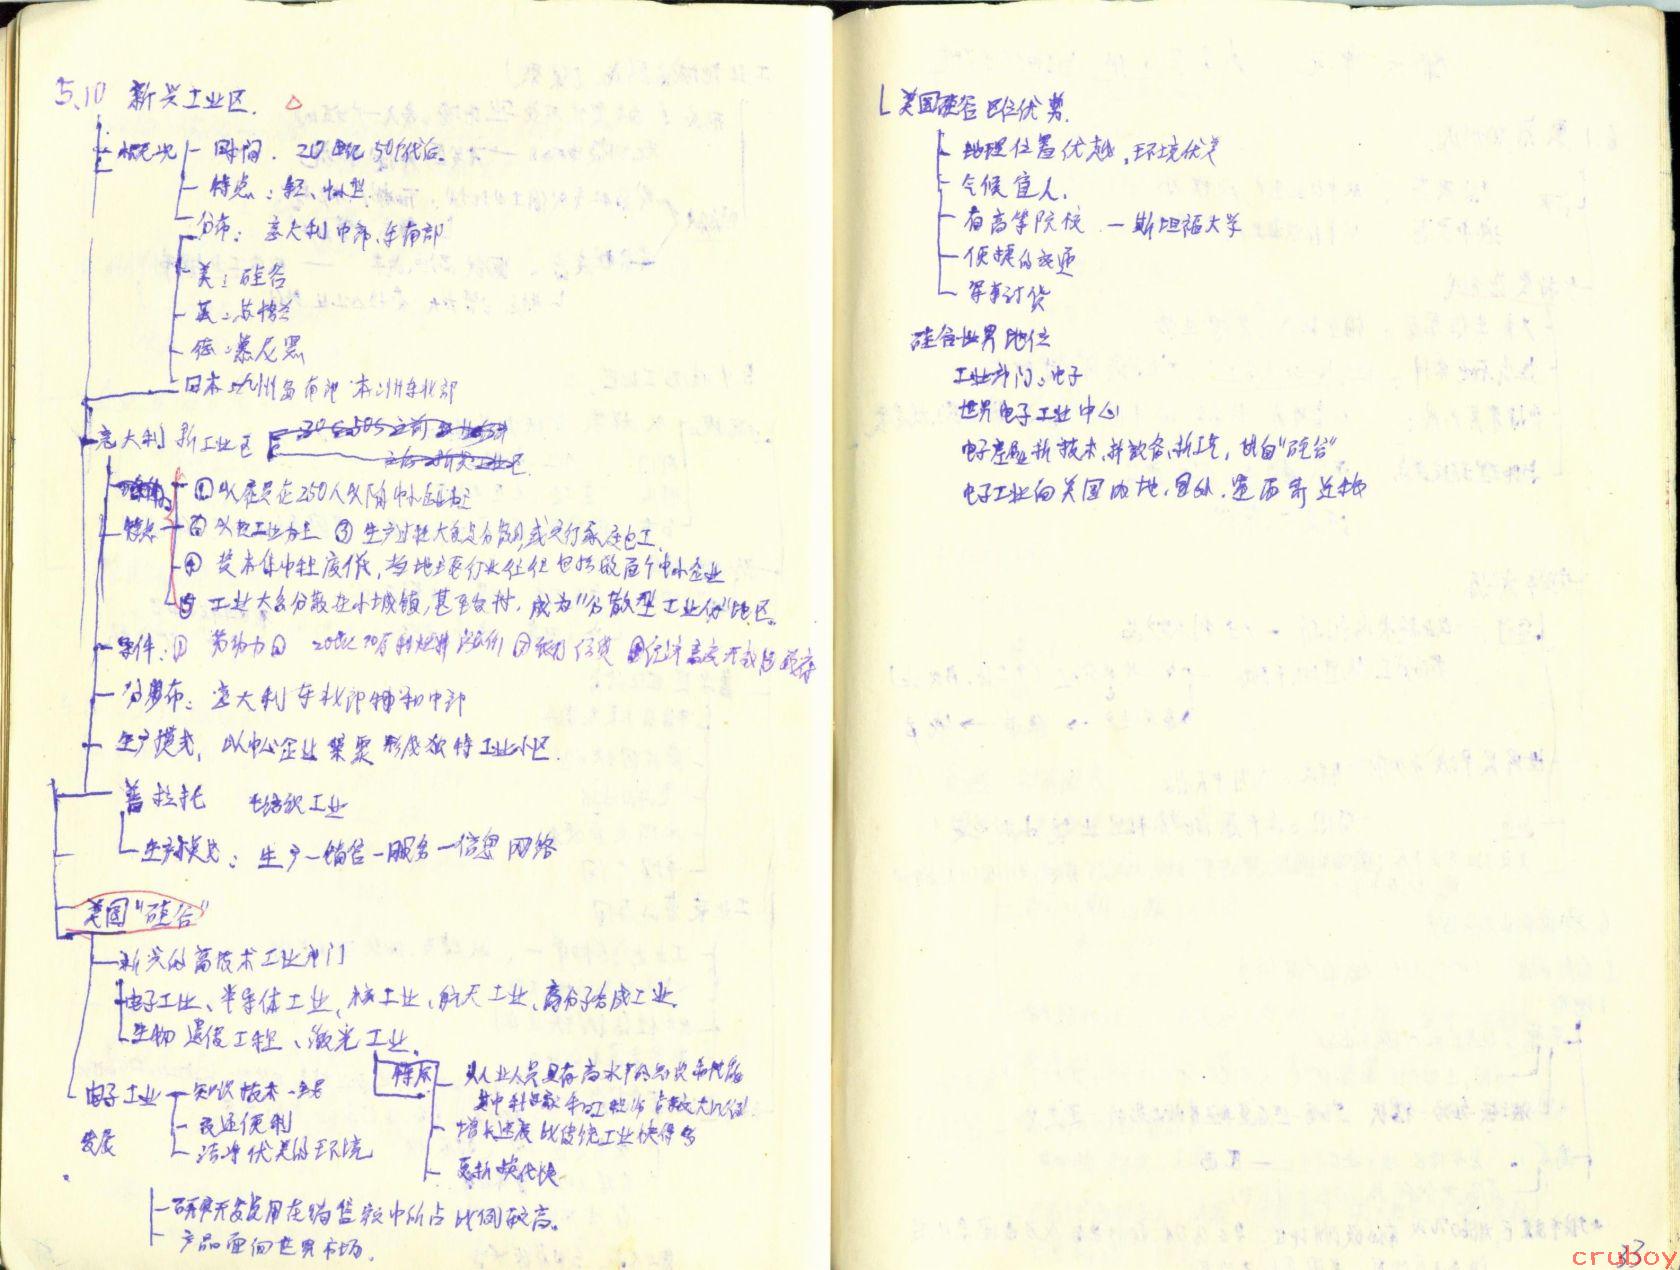 5.10 新兴工业区.
概况 时间. 20世纪50年代后.
特点:轻、中小型
分布: 意大利中部、东南部
美:硅谷
英:苏格兰
德:慕尼黑
日本:九州岛 本州东北部
意大利新工业区
① 以雇员在250人以下中小企业为主
特点 ② 以轻工业为主 ③ 生产过程大多是分散的,或实行家庭包工.
④ 资本集中程度低,当地主要行业往往包括数百个中小企业
⑤ 工业大多分散在小城镇,甚至农村,成为"分散型工业化"地区.
条件:① 劳动力
分布: 意大利东北部和中部
生产模式, 以中心企业 形成独特工业小区.
普拉托 毛纺织工业
生产模式: 生产—销售—服务—信息网络
美国"硅谷"
新兴的高技术工业部门
电子工业、半导体工业、核工业、航天工业、高分子合成工业.
生物遗传工程、激光工业.
电子工业 知识技术 特点 从业人员具有高水平的知识和技能
发展 交通便利 其中科学家和工程师占较大比例
洁净优美的环境 增长速度比传统工业快得多
更新换代快
研究开发费用在销售额中所占比例较高。
产品面向世界市场.
美国硅谷区位优势
地理位置优越,环境优美
气候宜人.
有高等院校 — 斯坦福大学
便捷的交通
军事订货
硅谷世界地位
工业部门:电子
世界电子工业中心
电子产业新技术、新设备、新工艺,出自"硅谷"
电子工业向美国内地,国外
33
cruboy